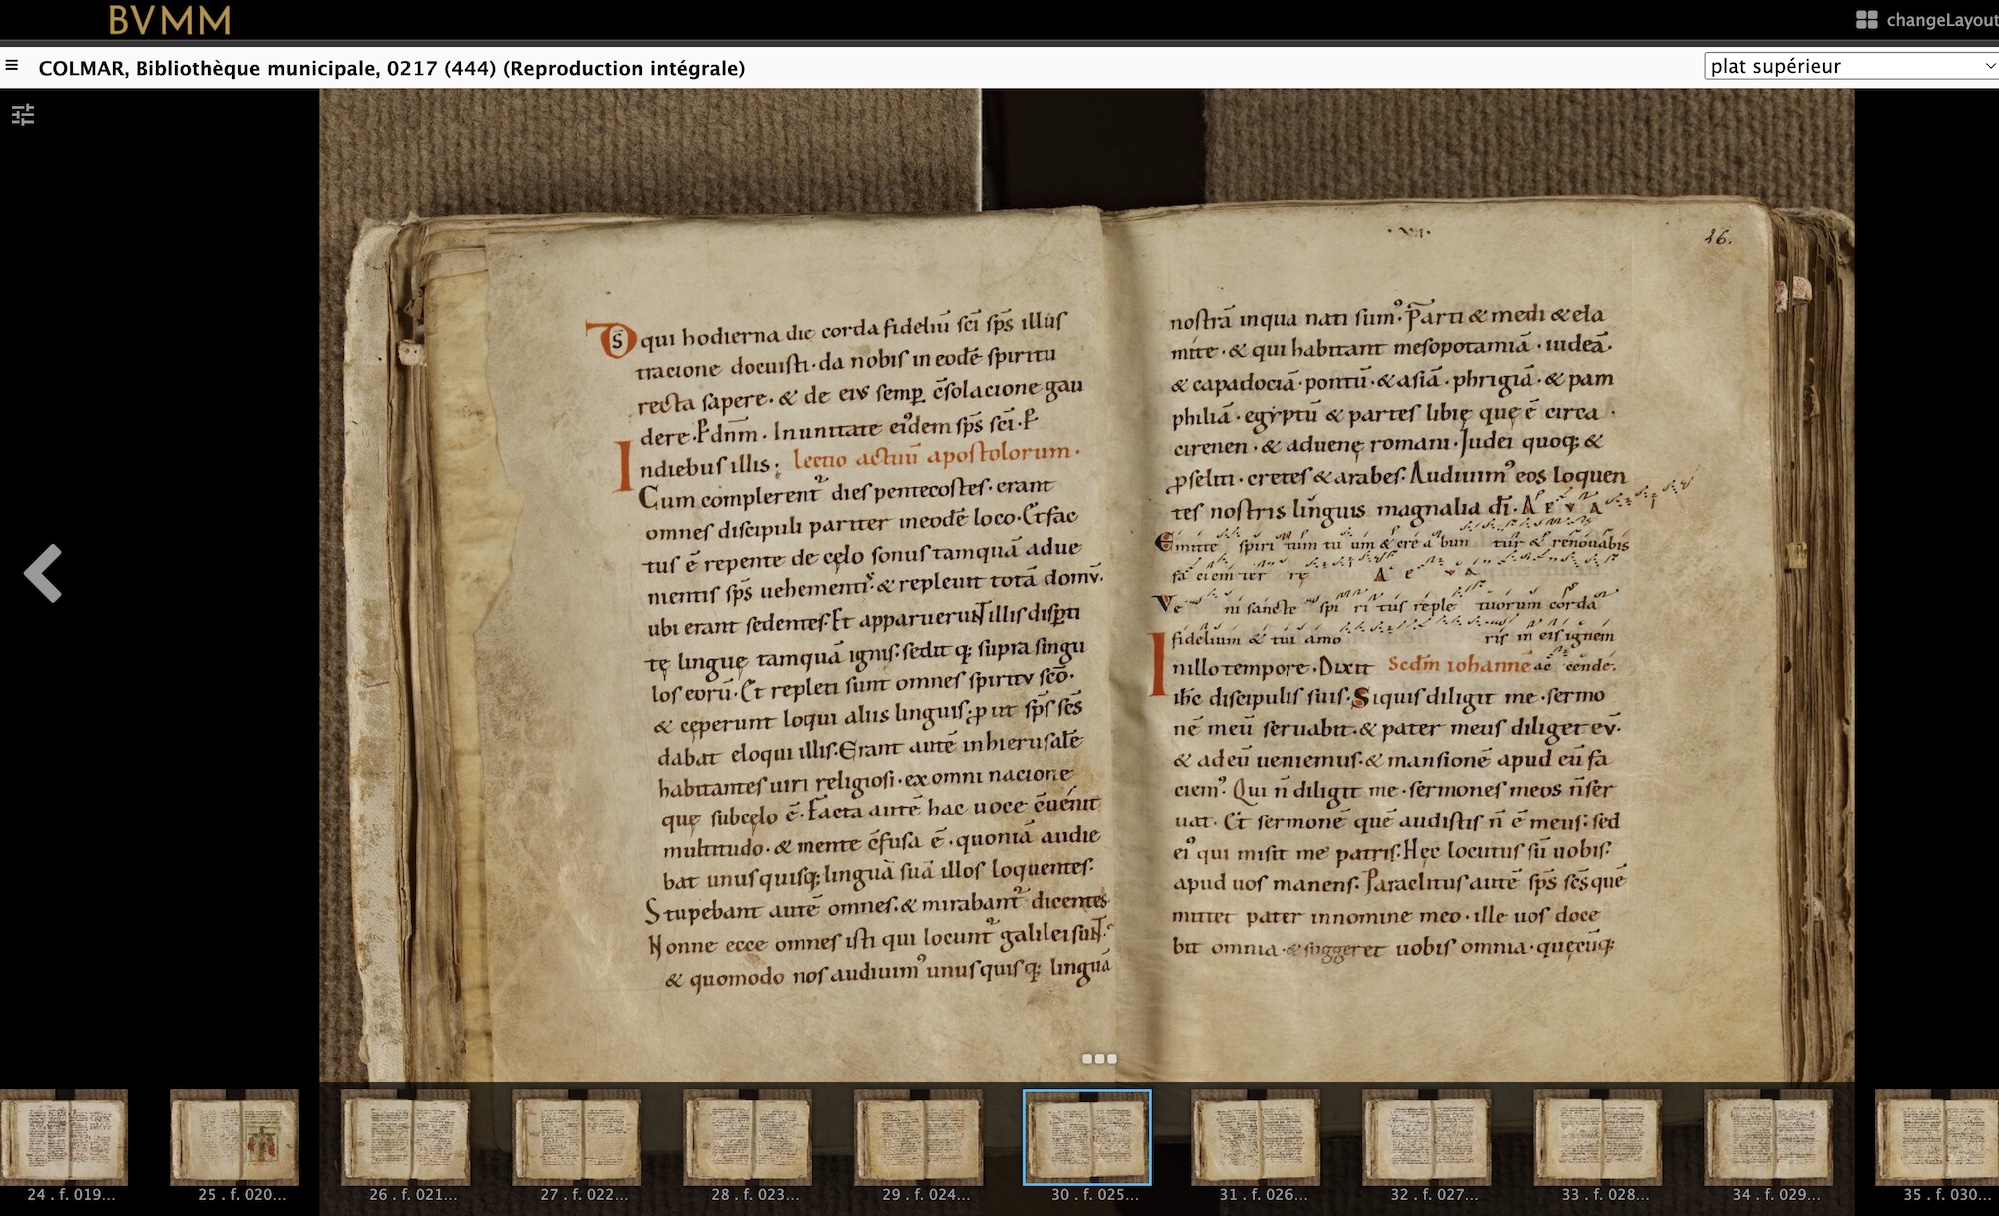 BVMM
changeLayout
COLMAR, Bibliothèque municipale, 0217 (444) (Reproduction intégrale)
plat supérieur
Ds̄ qui hodierna die corda fideliū sc̄i sp̄s illus
tracione docuisti· da nobis in eodē spiritu
recta sapere· & de eius semp̱ c̄solacione gau
dere· P dn̄m· In unitate eiꝰdem sp̄s sc̄i· P
Indiebus illis· lectio actuū apostolorum·
Cum complerent᷑ dies pentecostes· erant
omnes discipuli pariter ineodē loco· Et fac
tus ē repente de cęlo sonus tamquā adue
nientis sp̄s uehementis· & repleuit totā domū·
ubi erant sedentes· Et apparuerunt illis disp̱ti
tę linguę tamquā ignis· sedit q; supra singu
los eorū· Et repleti sunt omnes spiritu sc̄o·
& ceperunt loqui aliis linguis· p ut sp̄s sc̄s
dabat eloqui illis· Erant autē inhierusalē
habitantes uiri religiosi· ex omni nacione
quę subcęlo ē· Facta autē hac uoce c̄uenit
multitudo· & mente c̄fusa ē· quoniā audie
bat unusquisq; linguā suā illos loquentes·
Stupebant autē omnes· & mirabant᷑ dicentes
Nonne ecce omnes isti qui locunt᷑ galilei sunt·
& quomodo nos audiuimꝰ unusquisq; linguā
26.
nostrā inqua nati sumꝰ· Parti & medi & ela
mite· & qui habitant mesopotamiā· iudeā·
& capadociā· pontū· & asiā· phrigiā· & pam
philiā· egẏptū & partes libię quę ē circa·
cirenen· & aduenę romani· Judei quoq; &
ꝓseliti· cretes & arabes· Audiuimꝰ eos loquen
tes nostris linguis magnalia dī· A E V A
Emitte spiri tum tu um & cre a bun tur & renouabis
fa ciem ter rę A e v A
Ve ni sancte spi ri tus reple tuorum corda
fidelium & tui amo ris in eis ignem
Inillo tempore· Dixit Scd̄m iohannē ac cende·
ih̄c discipulis suis· Siquis diligit me· sermo
nē meū seruabit· & pater meus diliget eū·
& adeū ueniemus· & mansionē apud eū fa
ciemꝰ· Qui n̄ diligit me· sermones meos n̄ ser
uat· Et sermonē quē audistis n̄ ē meus· sed
eiꝰ qui misit me patris· Hęc locutus sū uobis·
apud uos manens· Paraclitus autē sp̄s sc̄s quē
mittet pater innomine meo· ille uos doce
bit omnia· & suggeret uobis omnia· quęcūq;
24 . f. 019...
25 . f. 020...
26 . f. 021...
27 . f. 022...
28 . f. 023...
29 . f. 024...
30 . f. 025...
31 . f. 026...
32 . f. 027...
33 . f. 028...
34 . f. 029...
35 . f. 030...